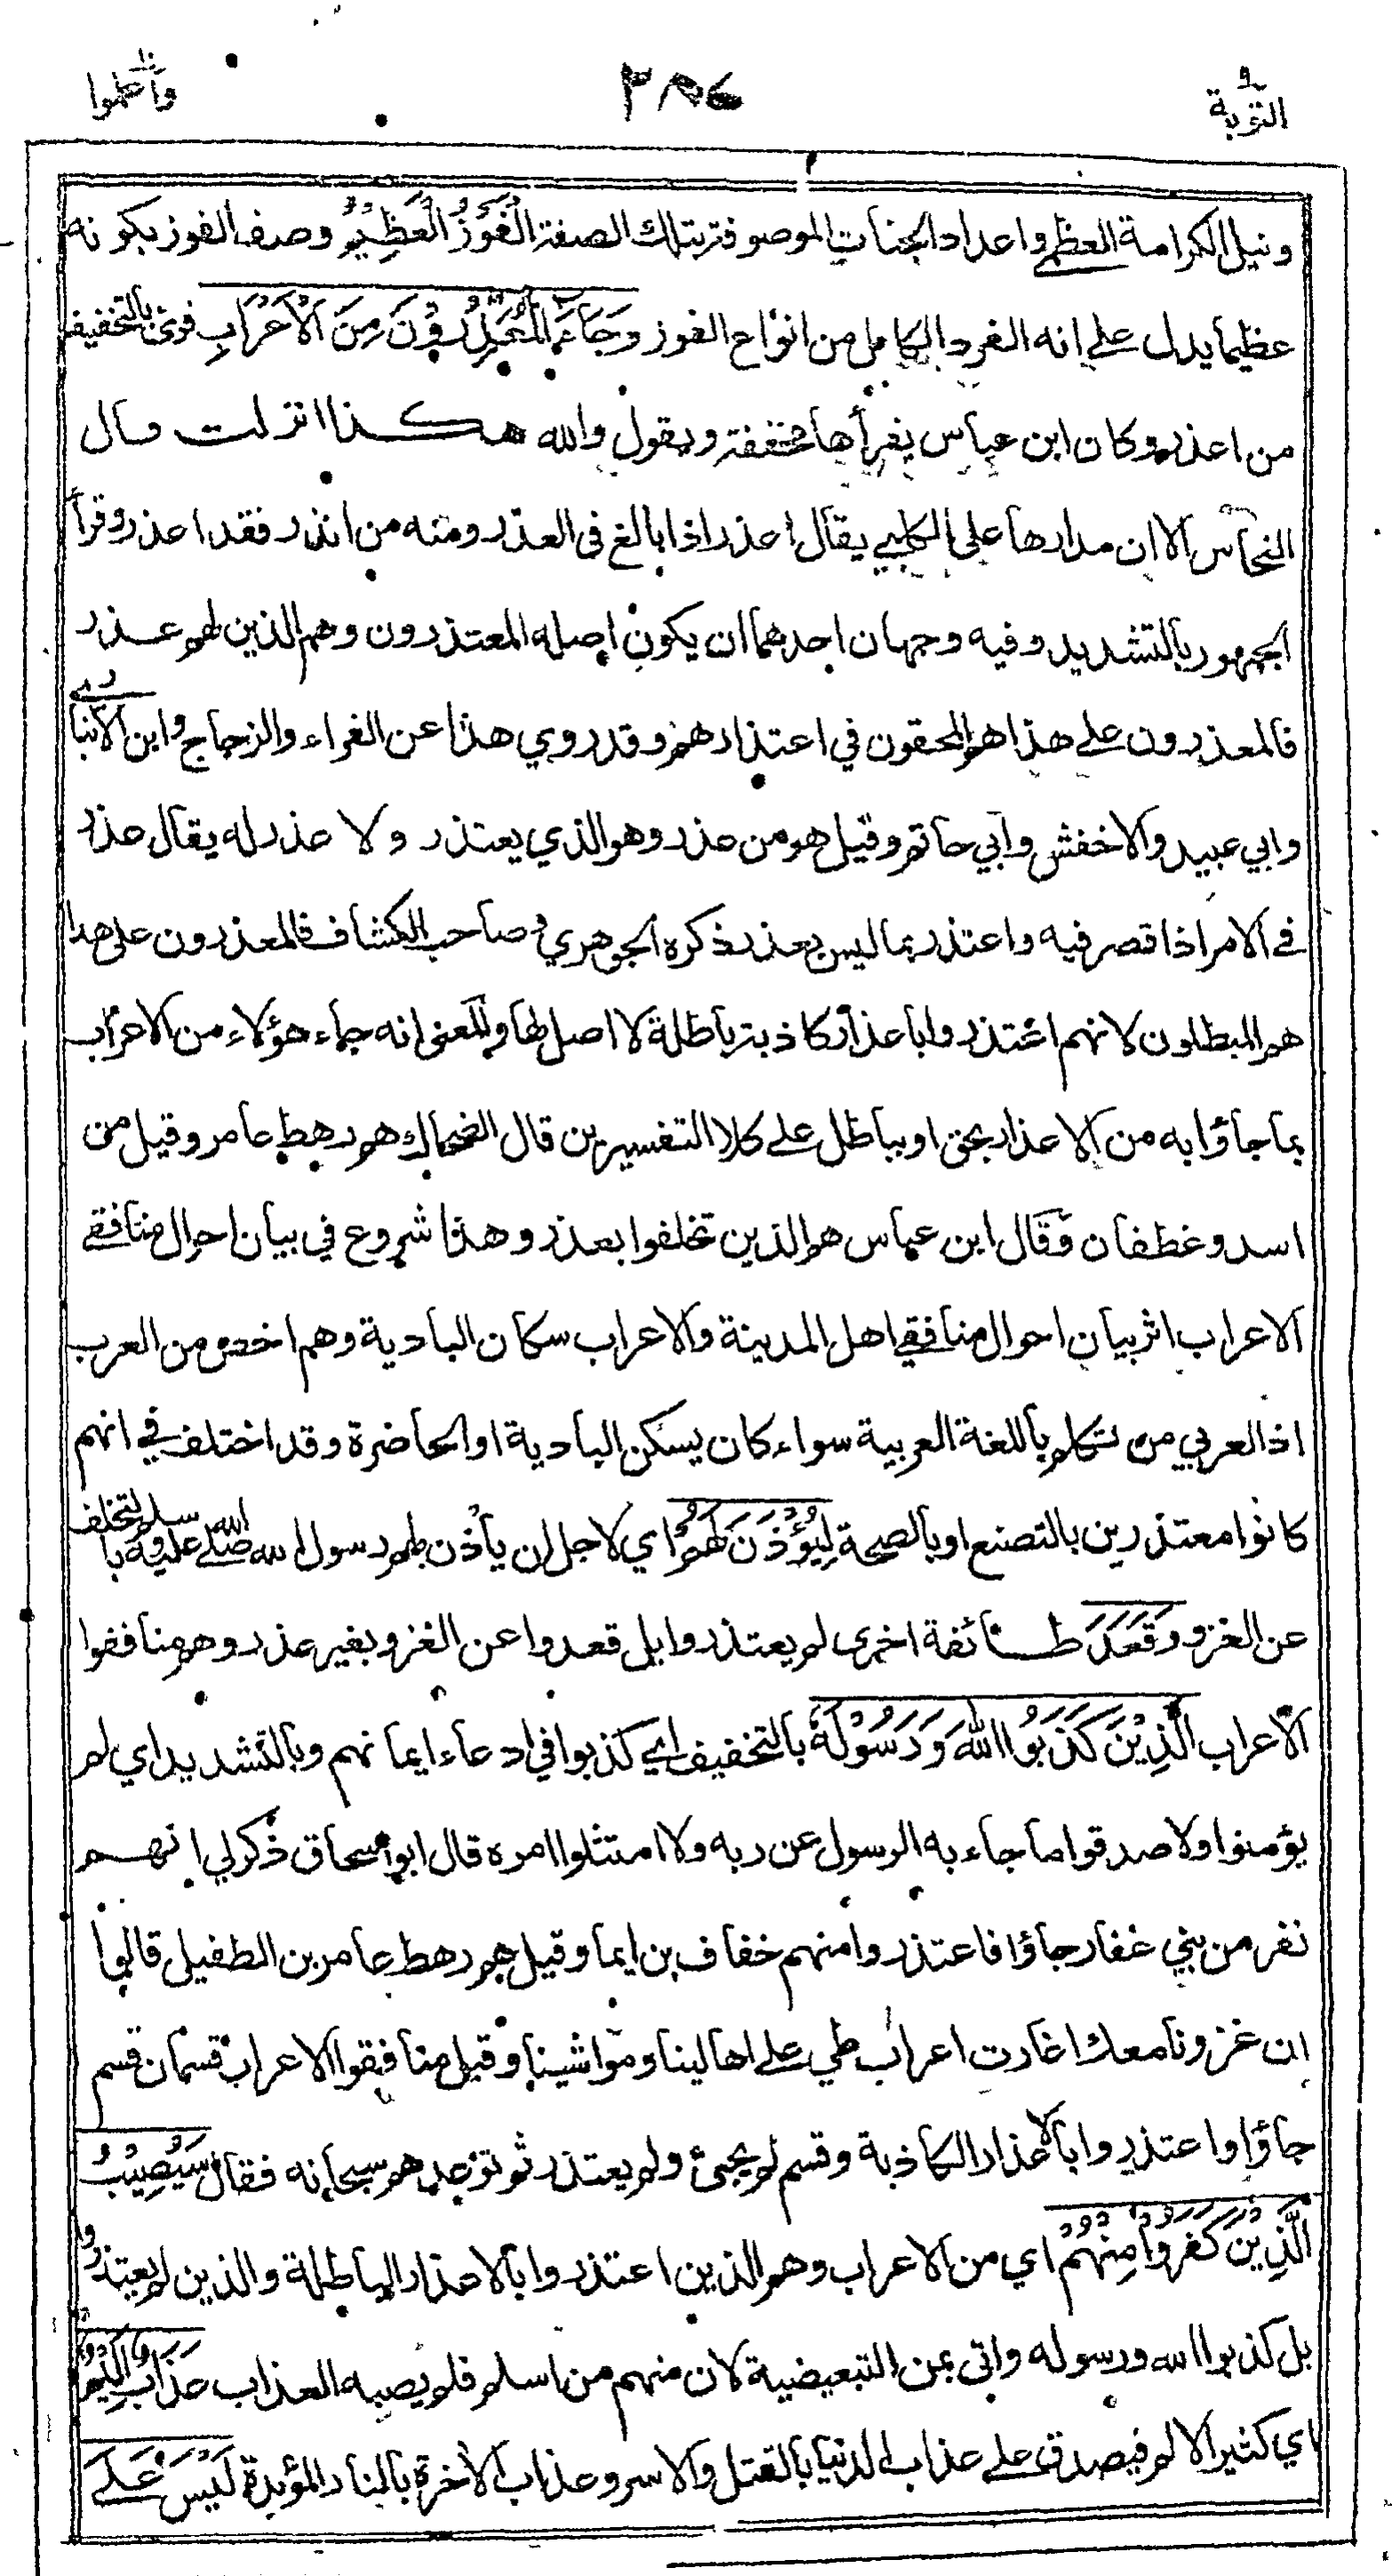 التوبة ٩
٣٨٤
واعلموا ١٠
ونيل الكرامة العظمى واعداد الجنات الموصوفة بتلك الصفة الْفَوْزُ الْعَظِيْمُ وصف الفوز بكونه
عظيما يدل على انه الفرد الكامل من انواع الفوز وَجَاءَ الْمُعَذِّرُوْنَ مِنَ الْأَعْرَابِ قرئ بالتخفيف
من اعذر وكان ابن عباس يقرأها مخففة ويقول والله هكذا انزلت قال
النحاس الا ان مدارها على الكلبي يقال اعذر اذا بالغ في العذر ومنه من انذر فقد اعذر وقرأ
الجمهور بالتشديد وفيه وجهان احدهما ان يكون اصله المعتذرون وهم الذين لهم عذر
فالمعذرون على هذا هم المحقون في اعتذارهم وقد روي هذا عن الفراء والزجاج وابن الانباري
وابي عبيد والاخفش وابي حاتم وقيل هو من عذر وهو الذي يعتذر ولا عذر له يقال عذر
في الامر اذا قصر فيه واعتذر بما ليس بعذر ذكره الجوهري وصاحب الكشاف فالمعذرون على هذا
هم المبطلون لانهم اعتذروا باعذار كاذبة باطلة لا اصل لها والمعنى انه جاء هؤلاء من الاعراب
بما جاؤا به من الاعذار بحق او بباطل على كلا التفسيرين قال الضحاك هم رهط عامر وقيل من
اسد وغطفان وقال ابن عباس هم الذين تخلفوا بعذر وهذا شروع في بيان احوال منافقي
الاعراب اثر بيان احوال منافقي اهل المدينة والاعراب سكان البادية وهم اخص من العرب
اذ العربي من تكلم باللغة العربية سواء كان يسكن البادية او الحاضرة وقد اختلف في انهم
كانوا معتذرين بالتصنع او بالصحة لِيُؤْذَنَ لَهُمْ اي لاجل ان يأذن لهم رسول الله صلى الله عليه وسلم بالتخلف
عن الغزو وَقَعَدَ طائفة اخرى لم يعتذروا بل قعدوا عن الغزو بغير عذر وهم منافقوا
الاعراب الَّذِيْنَ كَذَبُوا اللهَ وَرَسُوْلَهُ بالتخفيف اي كذبوا في ادعاء ايمانهم وبالتشديد اي لم
يؤمنوا ولا صدقوا ما جاء به الرسول عن ربه ولا امتثلوا امره قال ابو اسحاق ذكر لي انهم
نفر من بني غفار جاؤا فاعتذروا منهم خفاف بن ايما وقيل هم رهط عامر بن الطفيل قالوا
ان غزونا معك اغارت اعراب طي على اهالينا ومواشينا وقيل منافقوا الاعراب قسمان قسم
جاؤا واعتذروا بالاعذار الكاذبة وقسم لم يجئ ولم يعتذر ثم توعدهم سبحانه فقال سَيُصِيْبُ
الَّذِيْنَ كَفَرُوْا مِنْهُمْ اي من الاعراب وهم الذين اعتذروا بالاعذار الباطلة والذين لم يعتذروا
بل كذبوا الله ورسوله واتى بمن التبعيضية لان منهم من اسلم فلم يصبه العذاب عَذَابٌ اَلِيْمٌ
اي كثير الالم فيصدق على عذاب الدنيا بالقتل والاسر وعذاب الاخرة بالنار المؤبدة لَيْسَ عَلَى